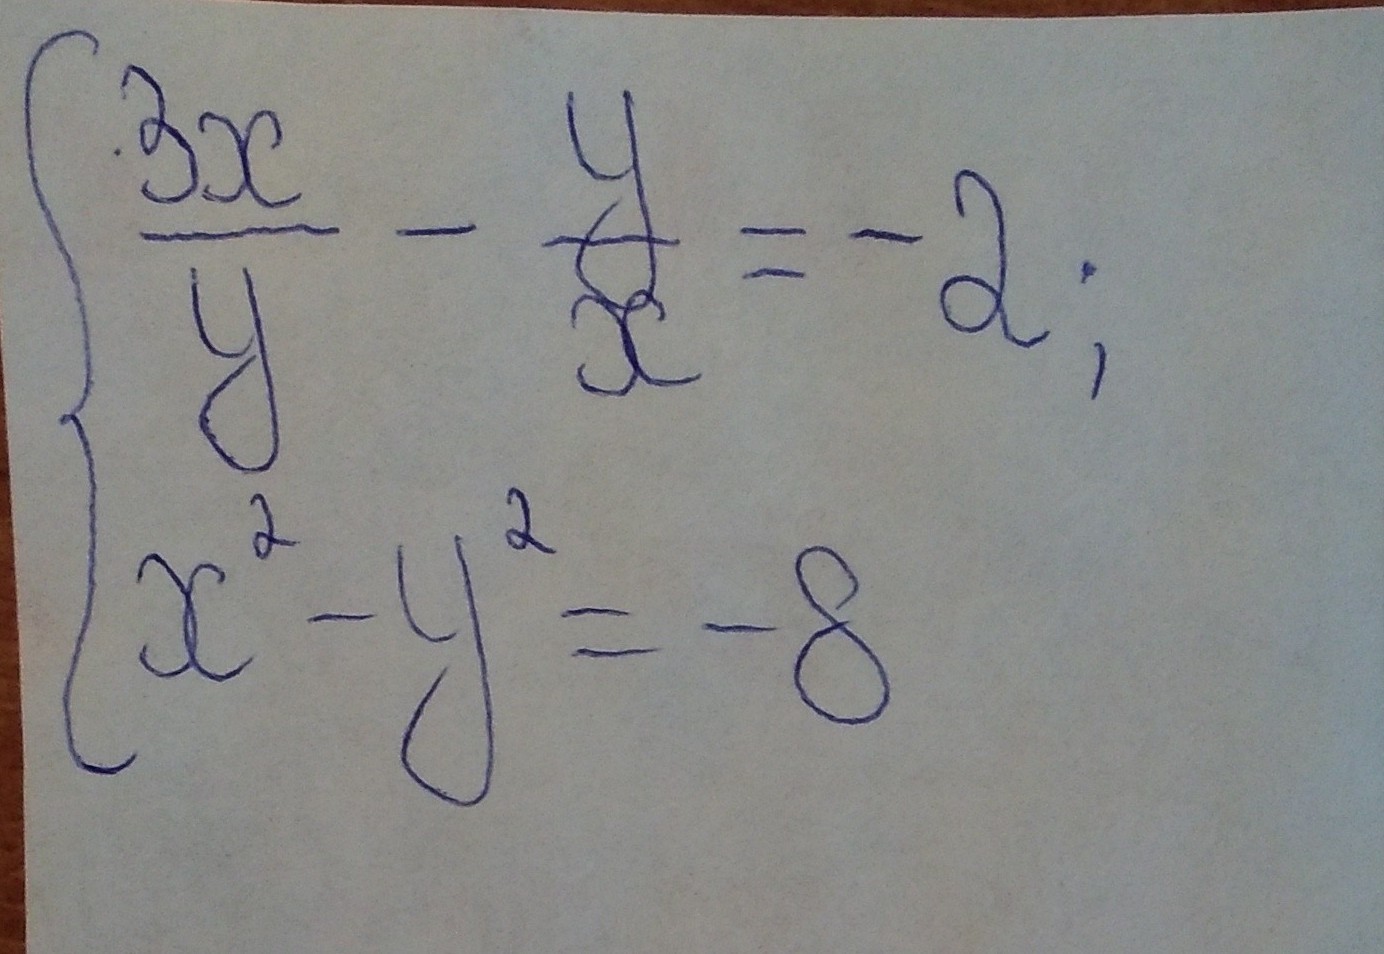 3x/y - y/x = -2;
x² - y² = -8